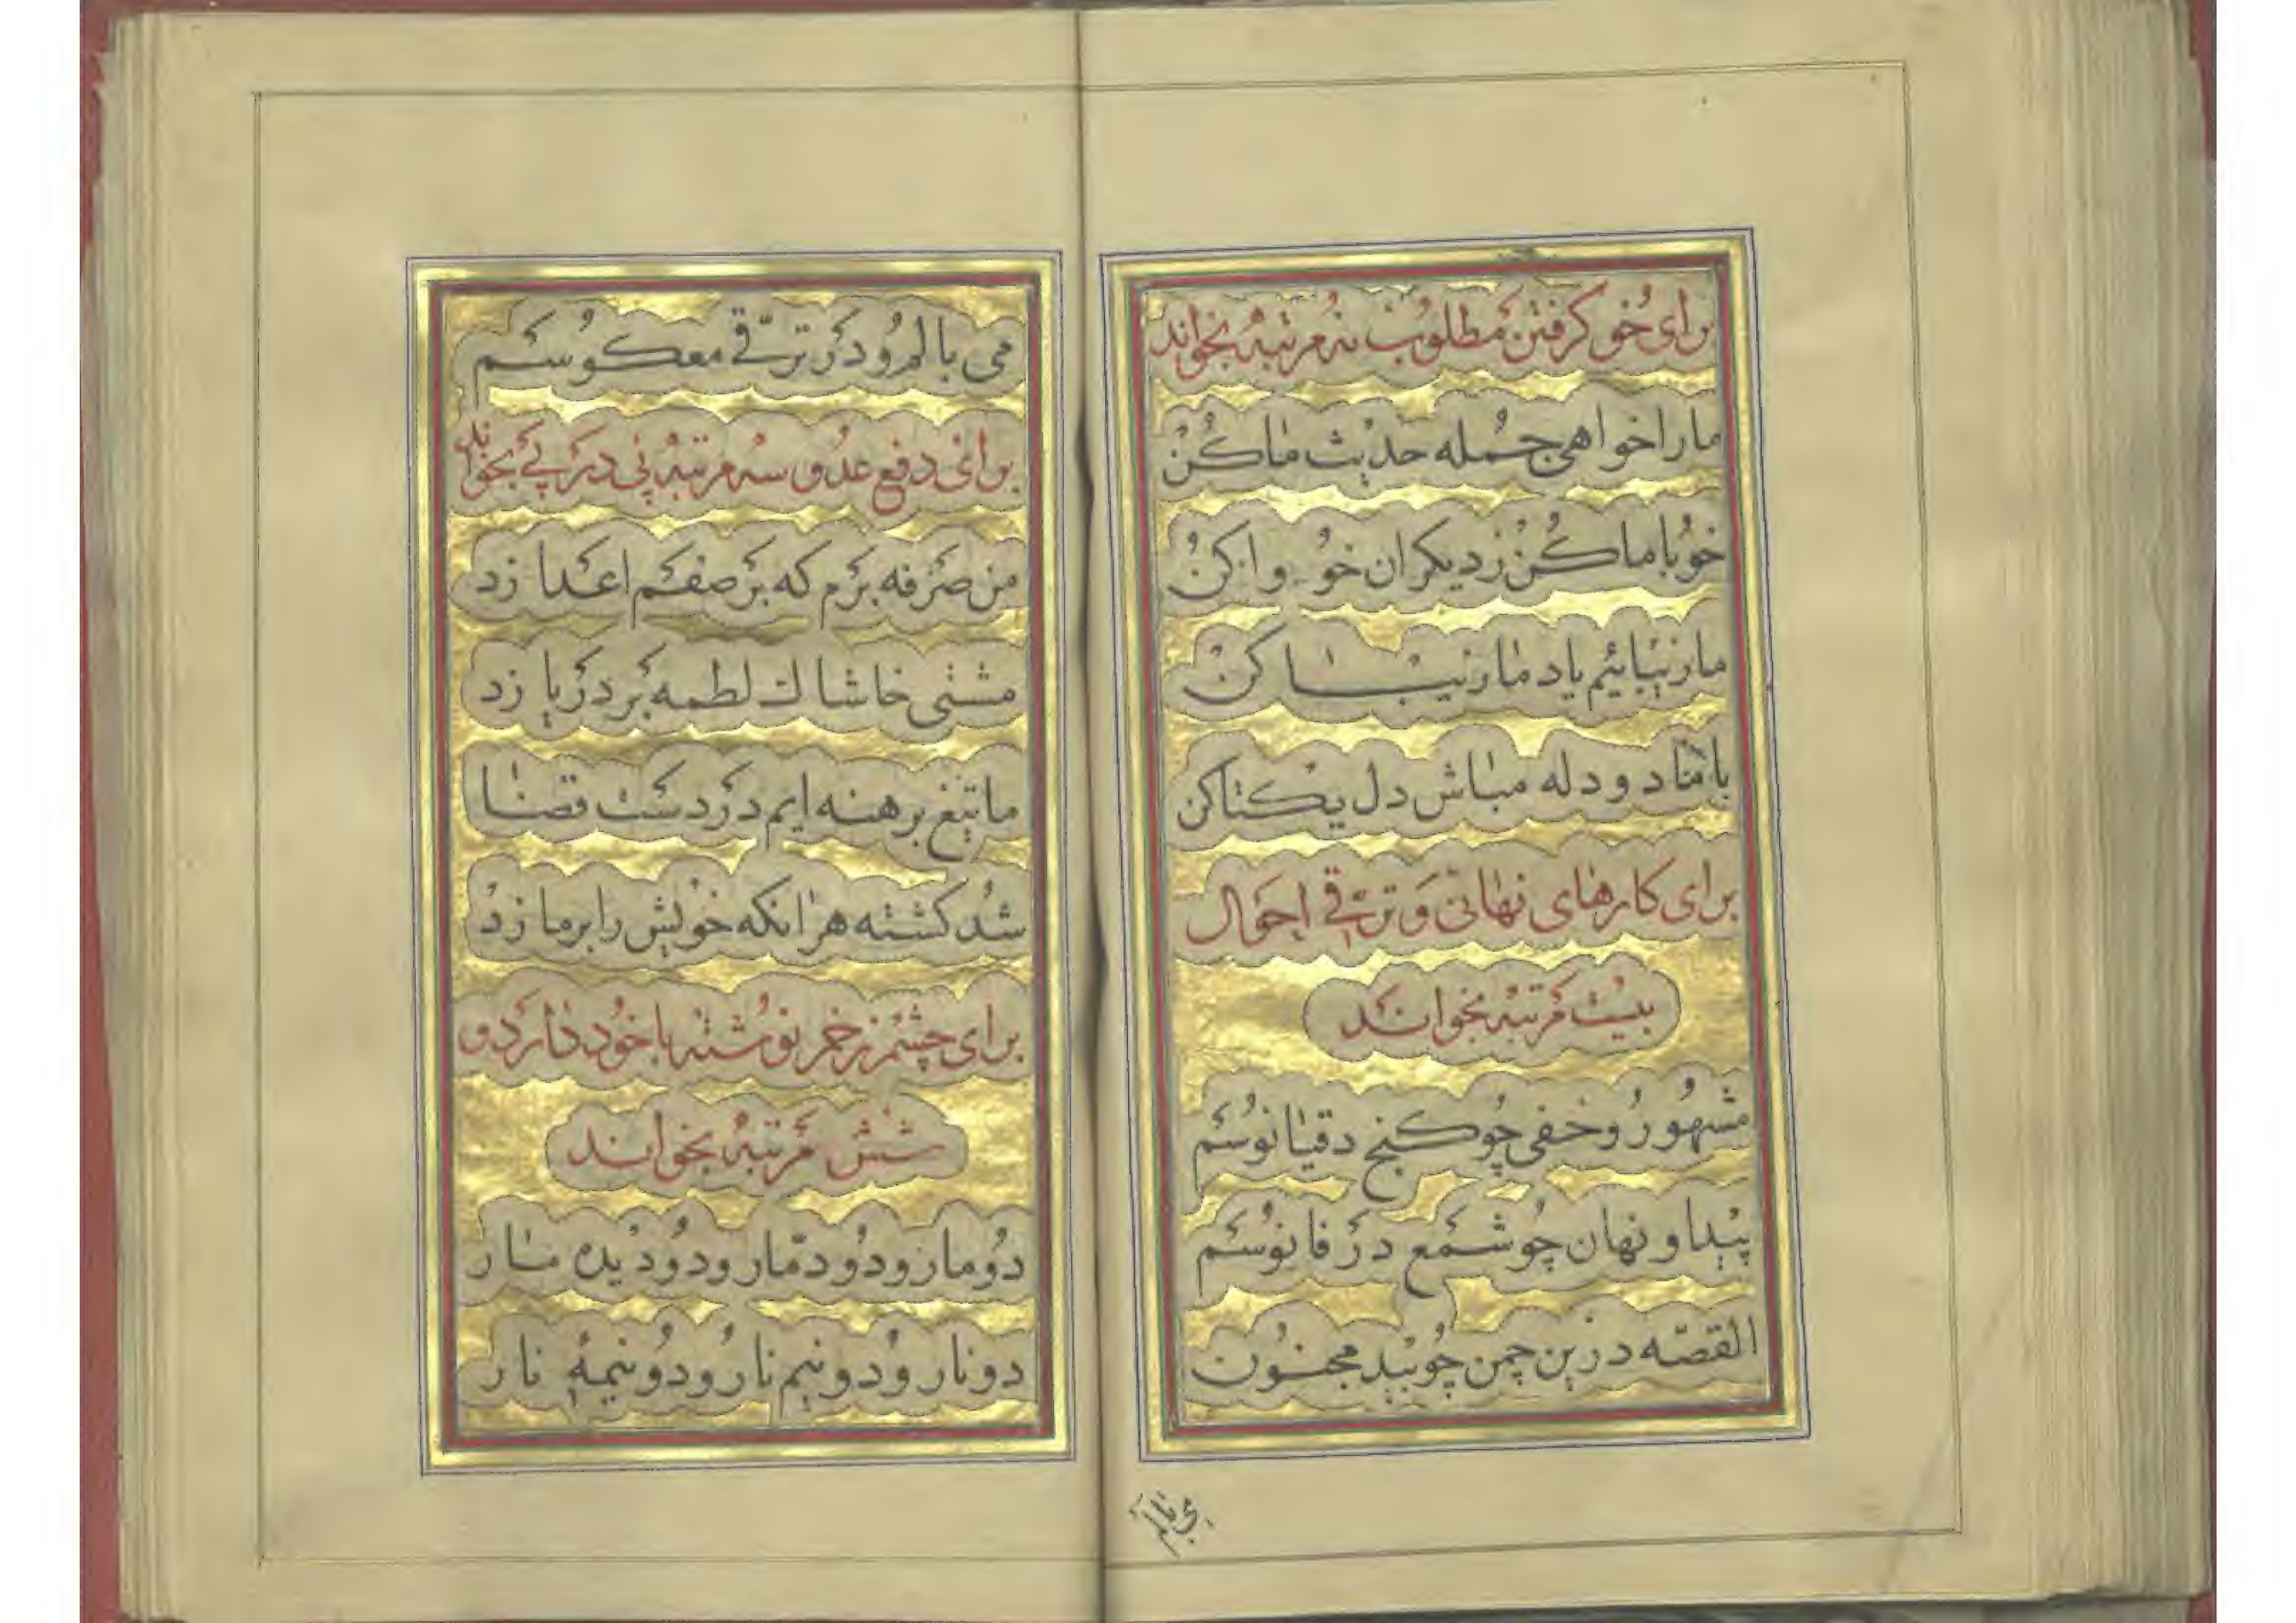 برای خو گرفتن مطلوب نه مرتبه بخواند
ما را خواهی جمله حدیث ما کن
خو با ما کن ز دیگران خو وا کن
ما زیبائیم یاد ما زیبا کن
با ما تو دو دله مباش دل یکتا کن
برای کارهای نهانی و ترقی احوال
بیست مرتبه بخواند
مشهور و خفی چو گنج دقیانوسم
پیدا و نهان چو شمع در فانوسم
القصّه درین چمن چو بید مجنون
می بالم
می بالم و در ترقی معکوسم
برای دفع عدو سه مرتبه پی در پی بخواند
من صرفه برم که بر صفم اعدا زد
مشتی خاشاک لطمه بر دریا زد
ما تیغ برهنه ایم در دست قضا
شد کشته هر آنکه خویش را بر ما زد
برای چشم زخم نوشته با خود دارد و
شش مرتبه بخواند
دو مار و دو دمار و دو دیده مار
دو نار و دو نیم نار و دو نیمهٔ نار